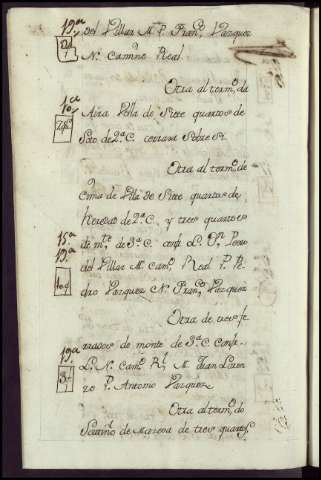 19.ª
del Pillar M. P. Fran.co Vazquez
N. Camino Real
Otra al term.o da
10.ª
Aira Vella de Siete quartos de
Soto de 2.ª C. cerrara Sobre Si
Otra al term.o de
Cima de Vila de Siete quartos de
Heredad de 2.ª C, y tres quartos
15.ª
de m.te de 3.ª C. conf. L. D.n Pedro
19.ª
del Pillar M. Cam.o Real P. Pe
109
dro Vazquez N. Fran.co Vazquez
Otra de tres fe
rrados de monte de 3.ª C confi.
19.ª
L. N. Cam.o R.l M. Juan Luren
3
zo P. Antonio Vazquez
Otra al term.o do
Soutiño de Mareva de tres quartos